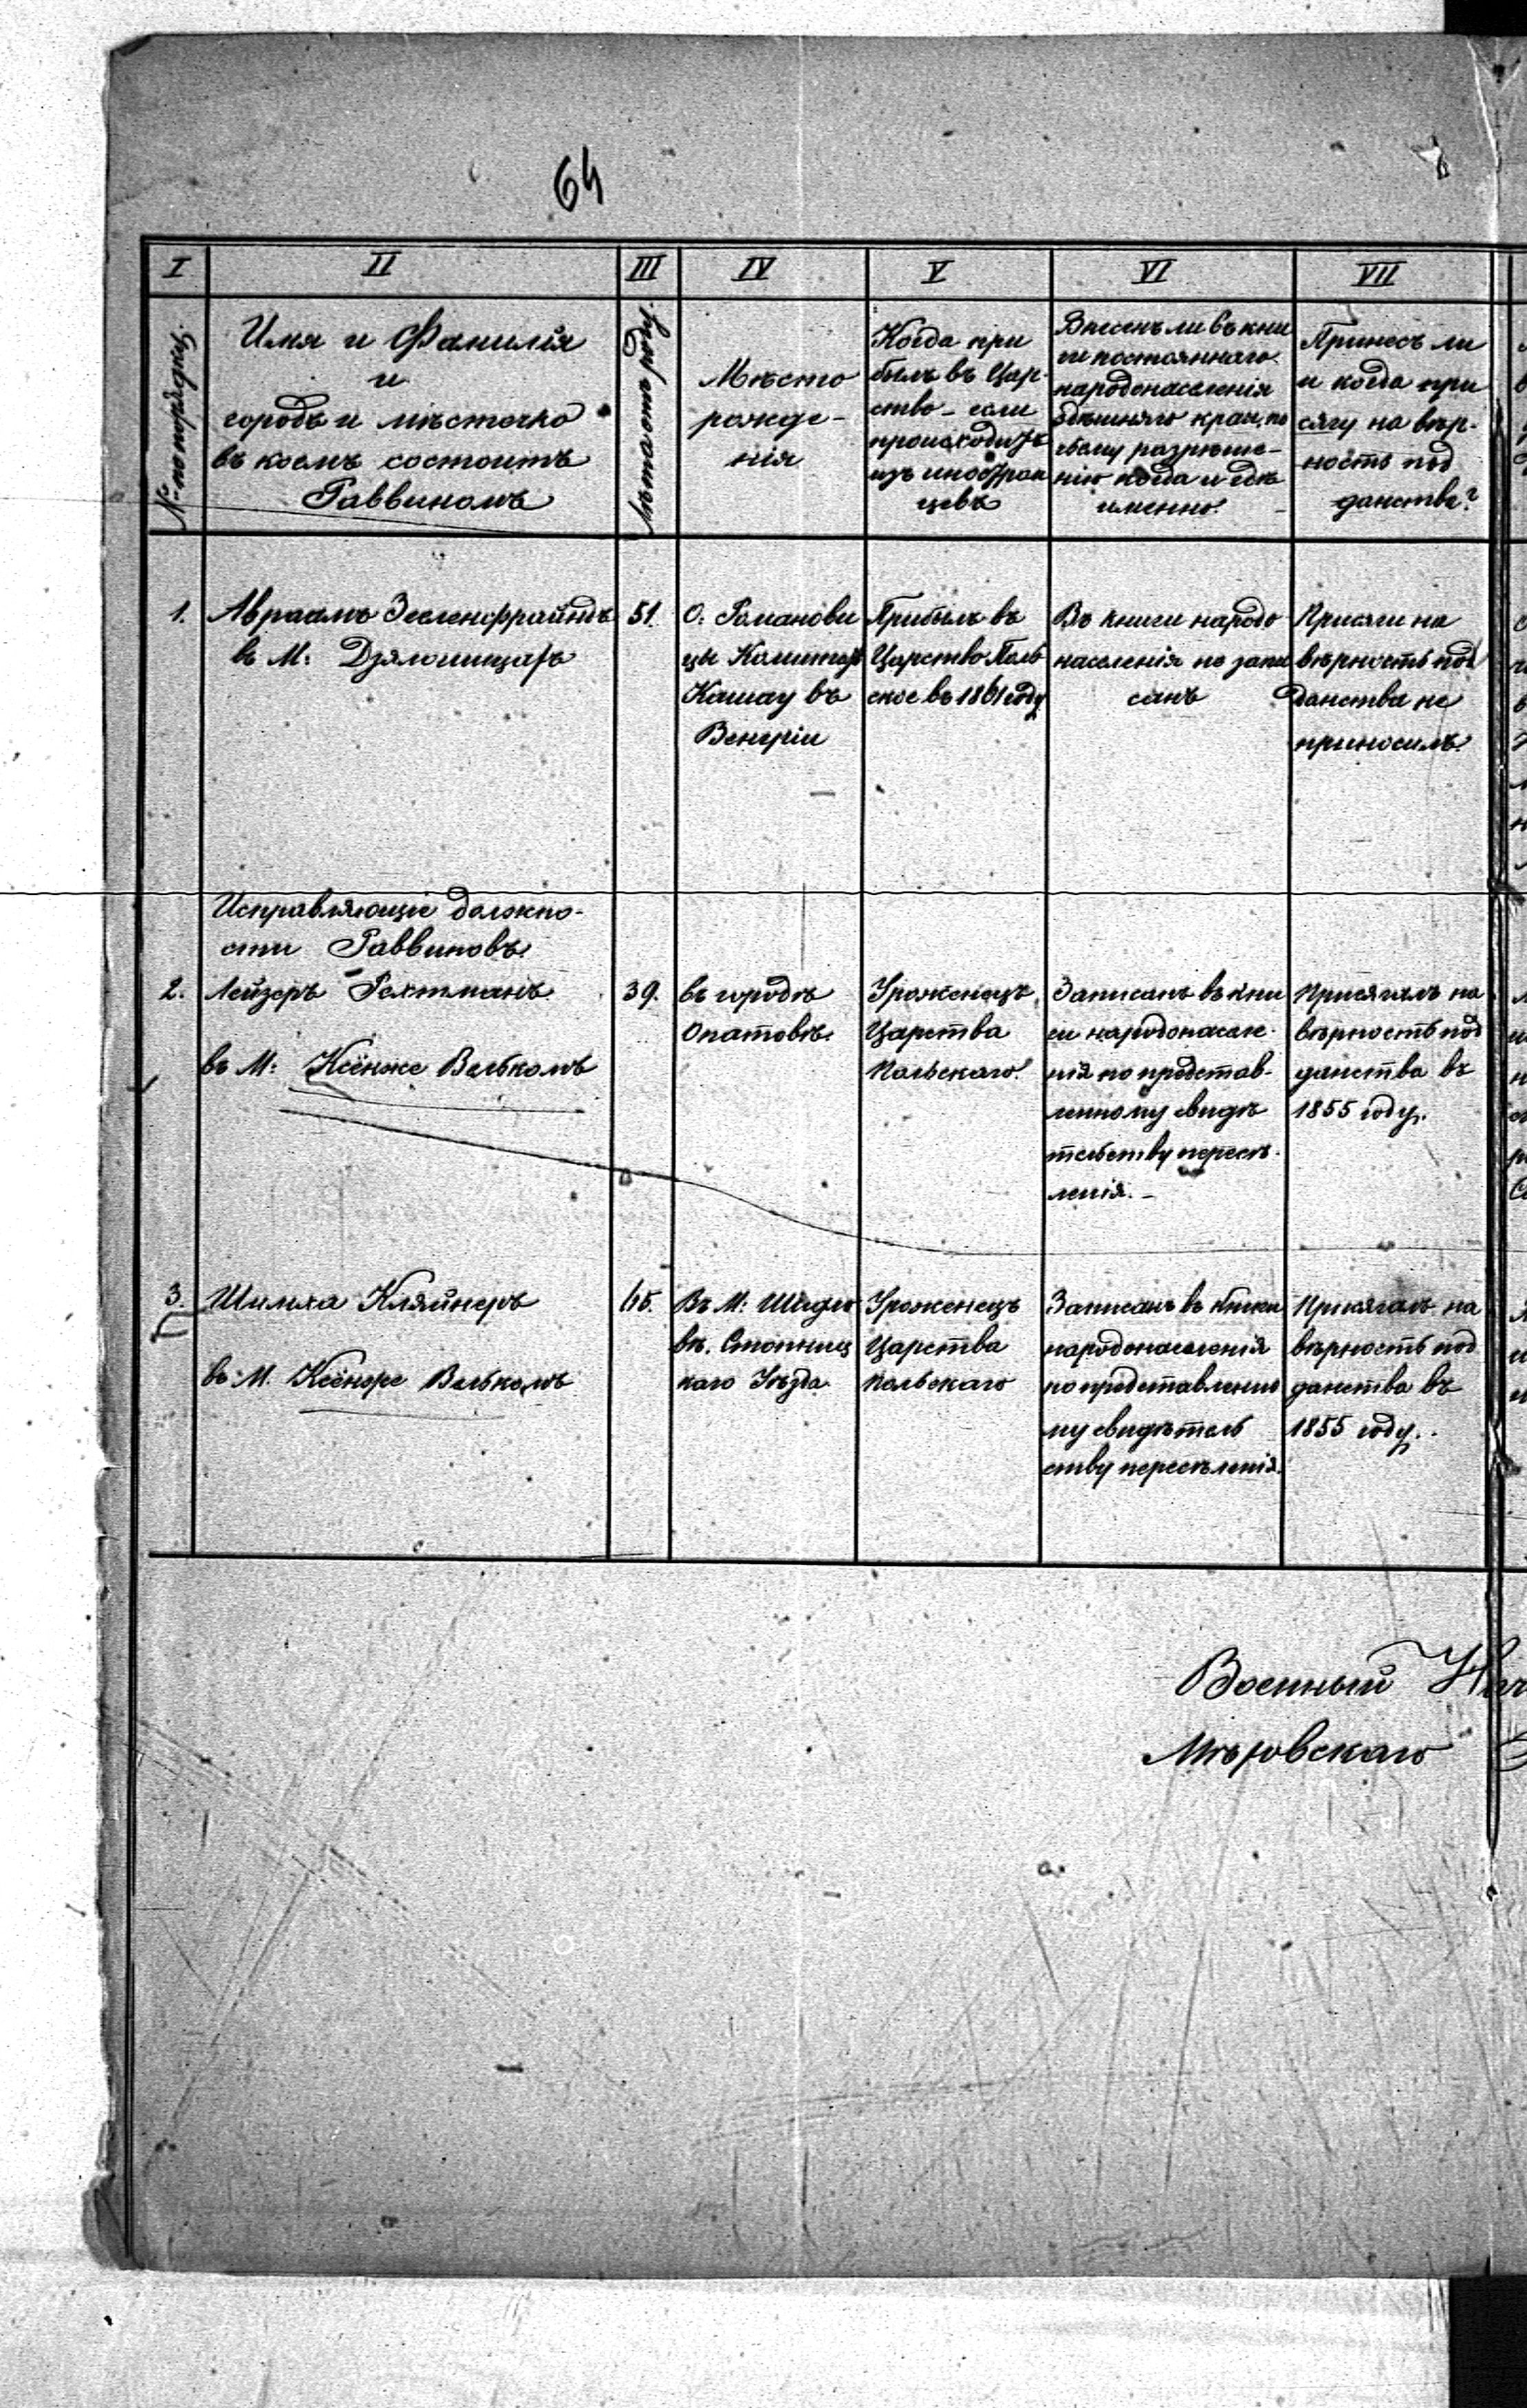 64
I II III IV V VI VII
№ по порядку.
Имя и Фамилія
и
городъ и мѣстечко
въ коемъ состоитъ
Раввиномъ
Лѣта отъ роду.
Мѣсто
рожде-
нія
Когда при
былъ въ Цар-
ство - если
происходитъ
изъ иностран
цевъ
Внесенъ ли въ кни
ги постояннаго
народонаселенія
здѣшняго края, по
чьему разрѣше-
нію когда и гдѣ
именно. -
Принесъ ли
и когда при
сягу на вѣр-
ность под
данства?
1.
Авраамъ Зееленфрайндъ
въ М: Дзялошицахъ
51.
О. Романови
цы Комитатъ
Кашау въ
Венгріи
Прибылъ въ
Царство Поль
ское въ 1861 году
Въ книги народо
населенія не запи
санъ
Присяги на
вѣрность под
данства не
приносилъ.
Исправляющіе должно-
сти Раввиновъ
2.
Лейзеръ Рехтманъ
въ М: Ксёнже Велькомъ
39.
въ городѣ
Опатовѣ.
Уроженецъ
Царства
Польскаго.
Записанъ въ кни
ги народонаселе-
нія по представ-
ленному свидѣ
тельству пересѣ-
ленія. -
Присягалъ на
вѣрность под
данства въ
1855 году.
3.
Шимха Кляйнеръ
въ М. Ксёнже Велькомъ
45.
Въ М: Шидло
вѣ. Стопниц
каго Уѣзда
Уроженецъ
Царства
Польскаго
Записанъ въ книги
народонаселенія
по представленно
му свидѣтель
ству переселенія.
Присягалъ на
вѣрность под
данства въ
1855 году.
Военный Нач
Мѣховскаго